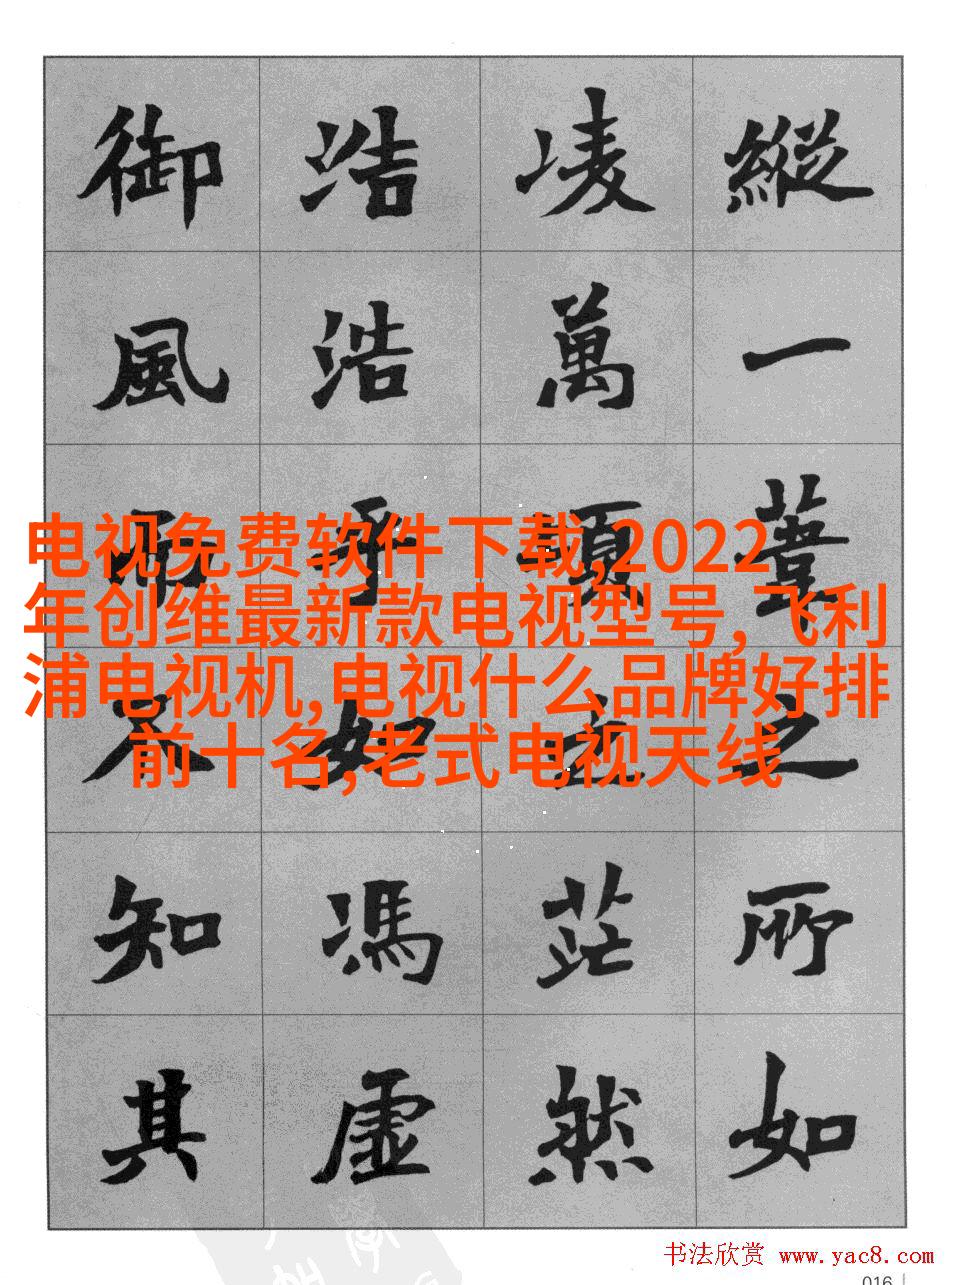 縱一葦之所如
凌萬頃之茫然
浩浩乎如馮虛
御風而不知其
电视免费软件下载,2022
年创维最新款电视型号,飞利
浦电视机,电视什么品牌好排
前十名,老式电视天线
书法欣赏 www.yac8.com
016